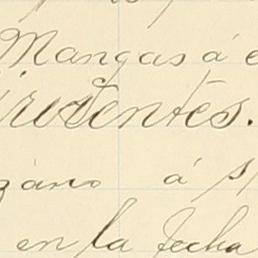 Mangas á e
irecentes.
zano á s/
en la fecha